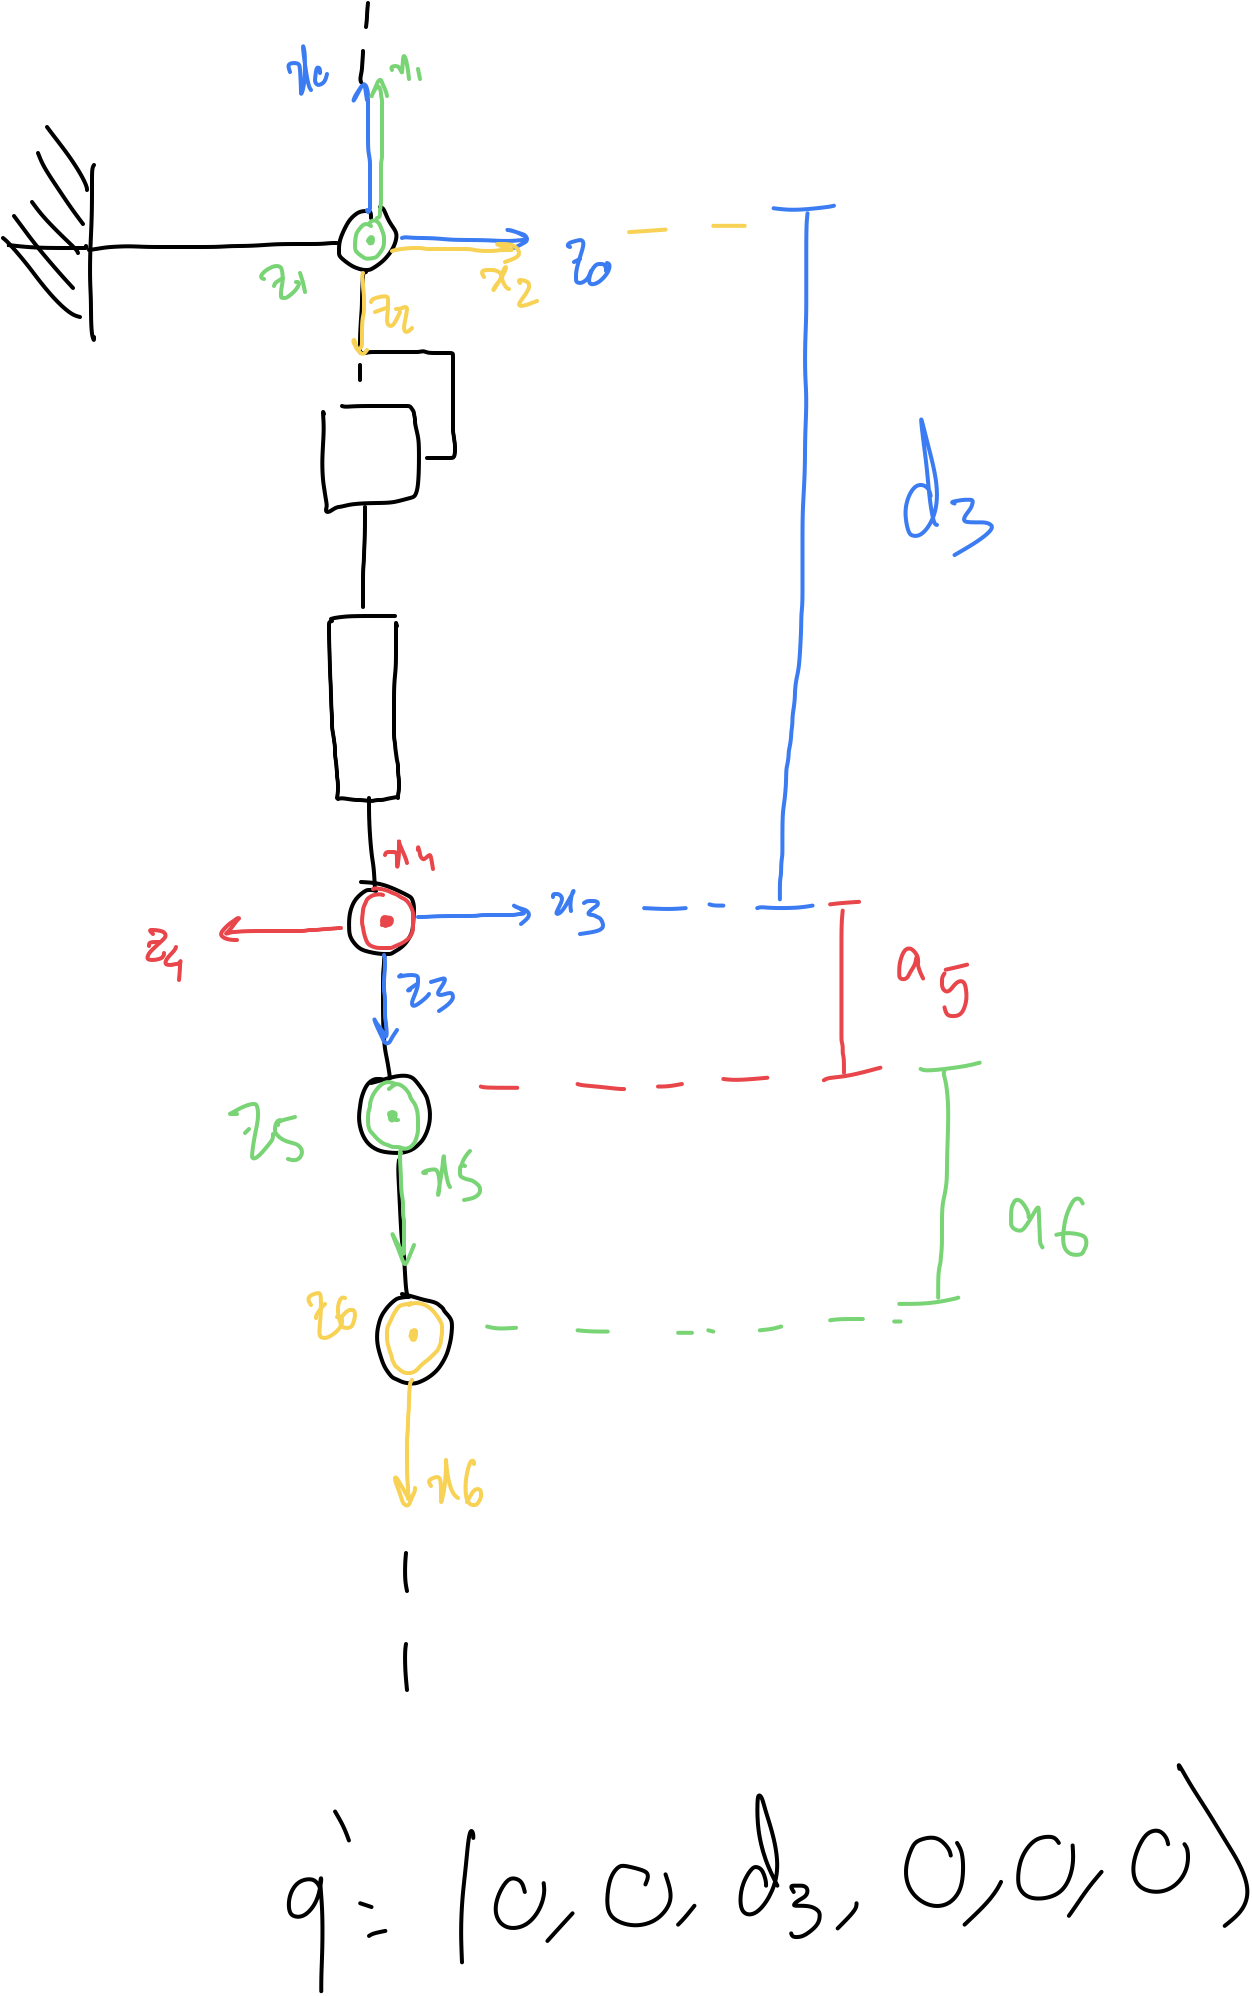 x0 x1
z0
z1 x2
z2
d3
x4
x3
z4
z3 a5
z5
x5 a6
z6
x6
q = (0, 0, d3, 0, 0, 0)